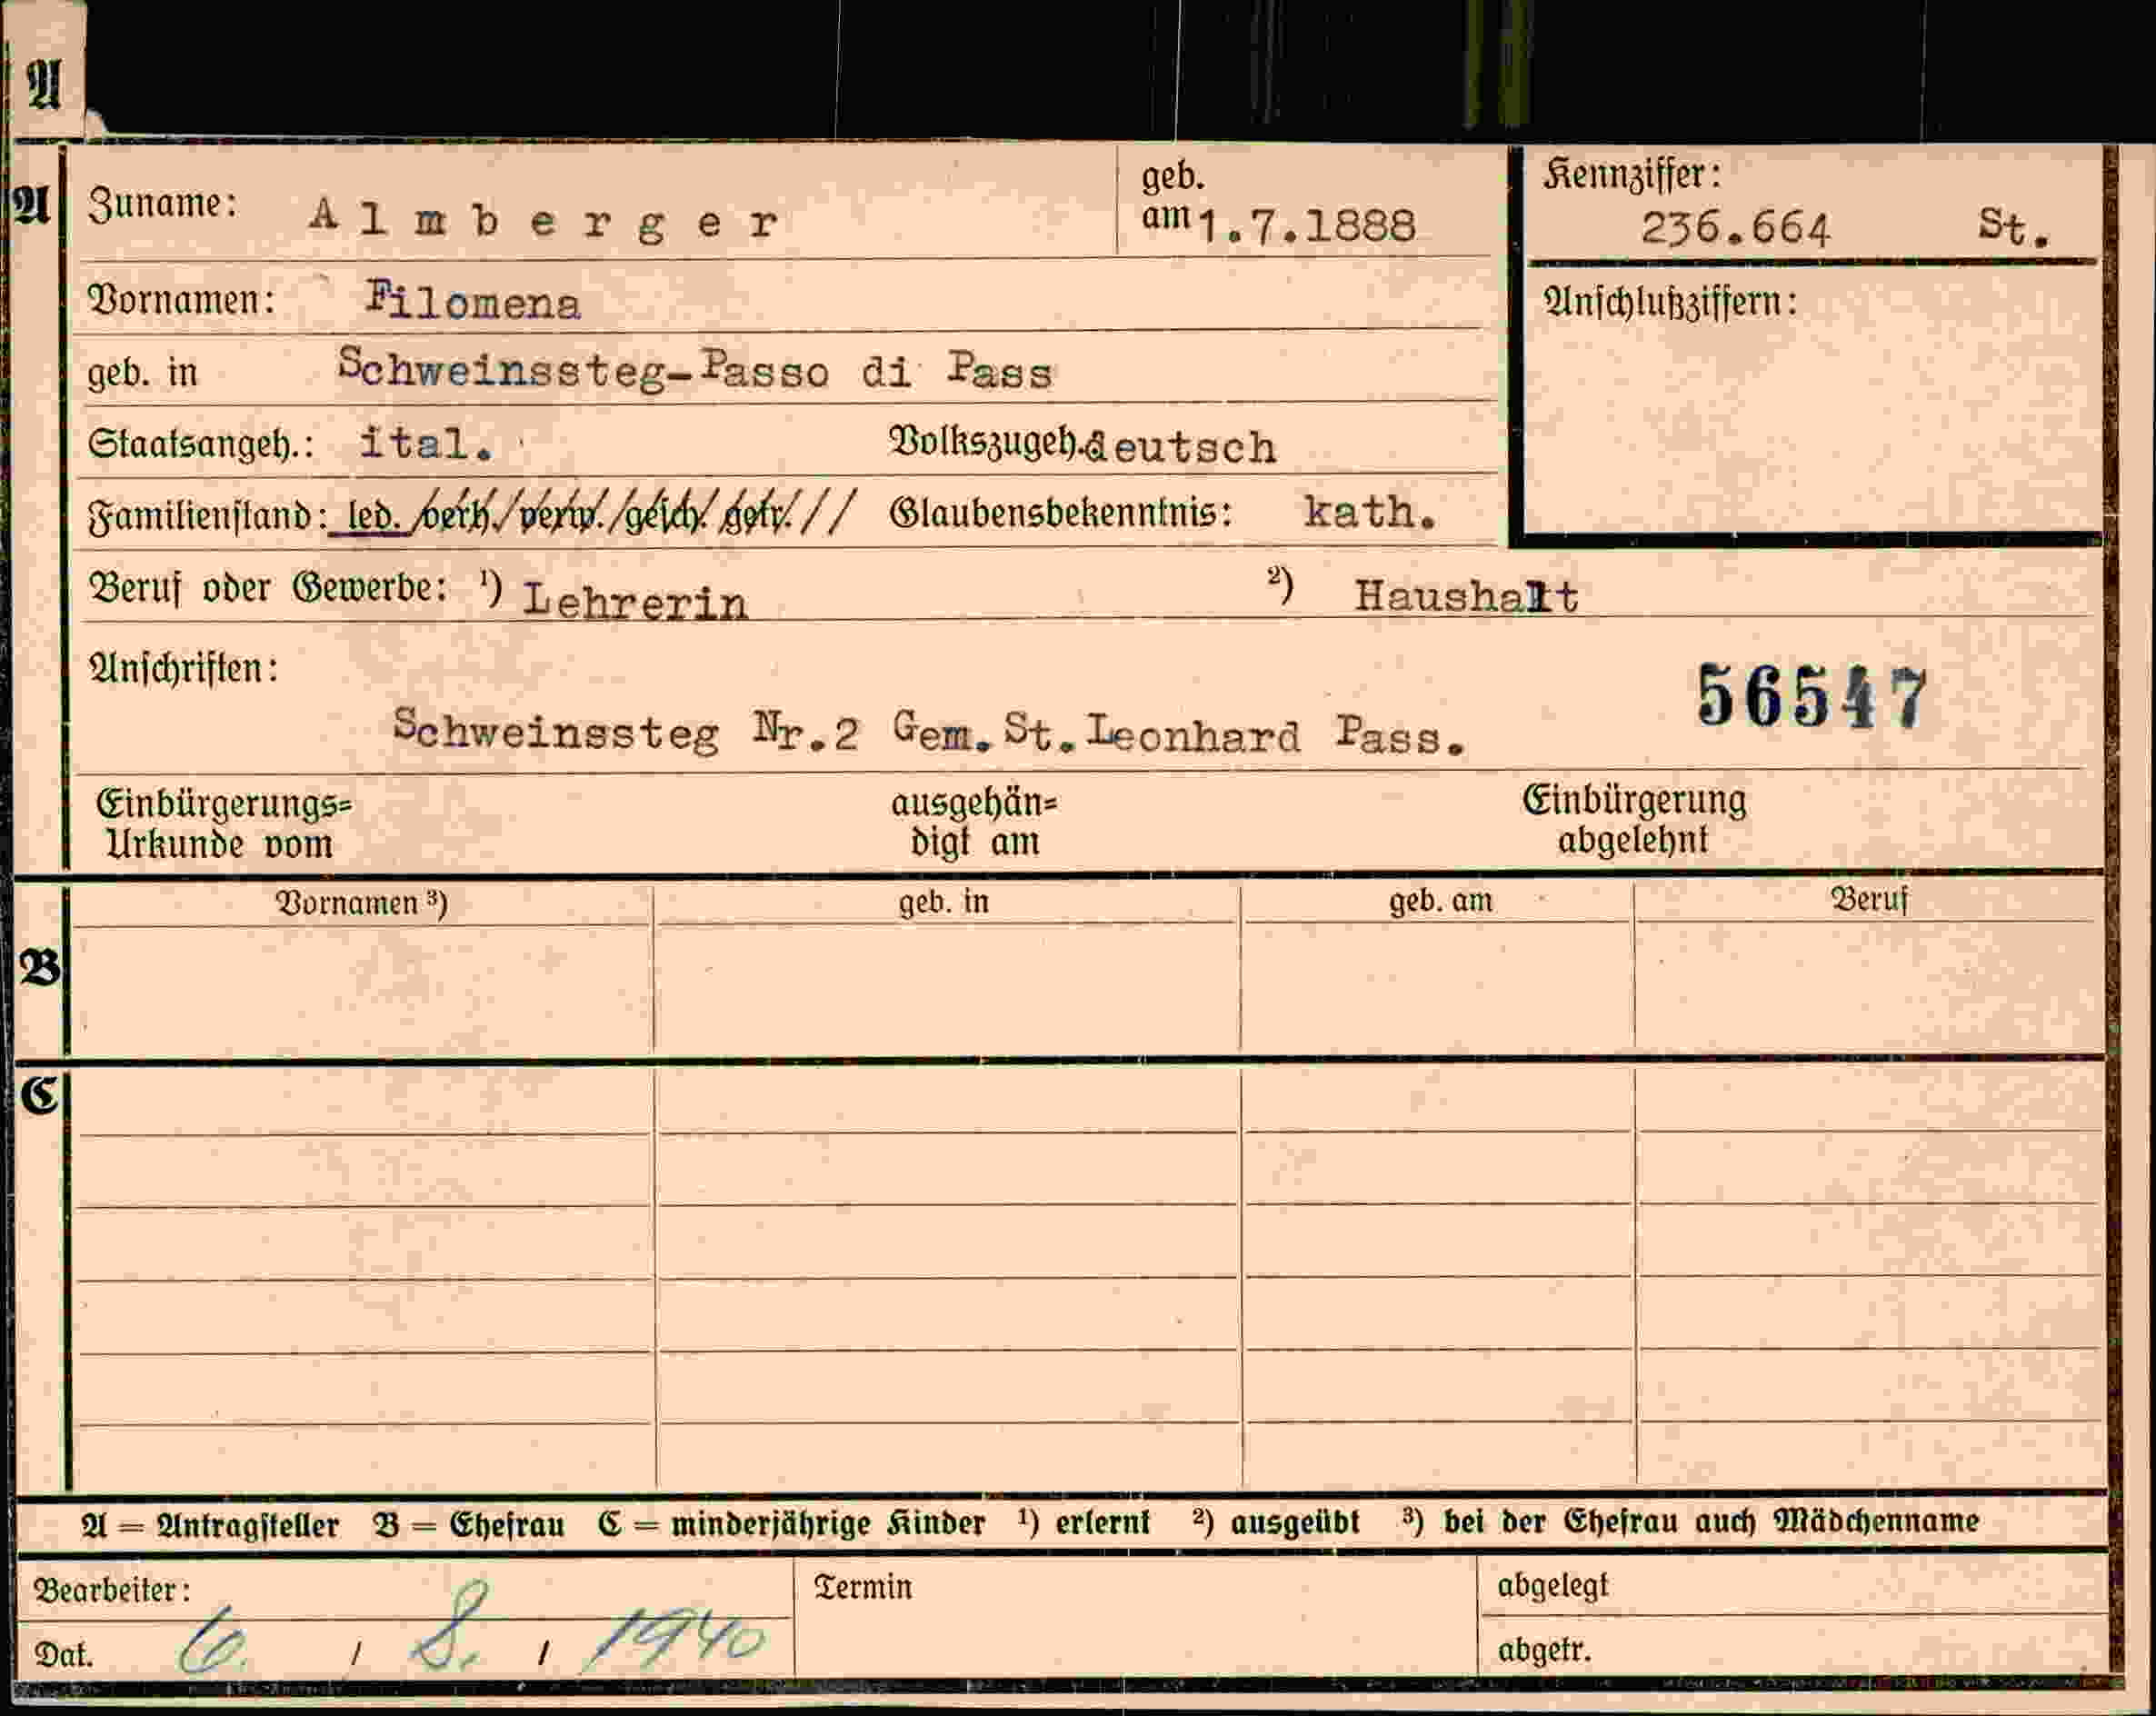 A
A Zuname: Almberger geb. am 1.7.1888 Kennziffer: 236.664 St.
Vornamen: Filomena Anschlußziffern:
geb. in Schweinssteg-Passo di Pass
Staatsangeh.: ital. Volkszugeh. deutsch
Familienstand: led./verh./verw./gesch./getr.// Glaubensbekenntnis: kath.
Beruf oder Gewerbe: ¹) Lehrerin ²) Haushalt
Anschriften: 56547
Schweinssteg Nr.2 Gem. St. Leonhard Pass.
Einbürgerungs= ausgehän= Einbürgerung
Urkunde vom digt am abgelehnt
Vornamen ³) geb. in geb. am Beruf
B
C
A = Antragsteller B = Ehefrau C = minderjährige Kinder ¹) erlernt ²) ausgeübt ³) bei der Ehefrau auch Mädchenname
Bearbeiter: Termin abgelegt
Dat. 6. / 8. / 1940 abgetr.